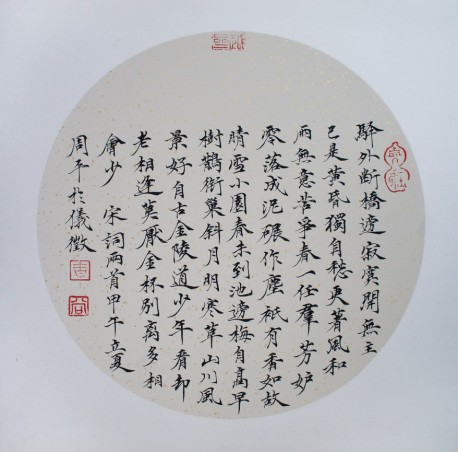 驛外断橋邊寂寞開無主
已是黄昏獨自愁更著風和
雨無意苦争春一任羣芳妒
零落成泥碾作塵祇有香如故
晴雪小園春未到池邊梅自高早
樹鵲銜巢斜月明寒草山川風
景好自古金陵道少年看却
老相逢莫厭金杯别離多相
會少 宋詞兩首甲午立夏
周平於儀徵